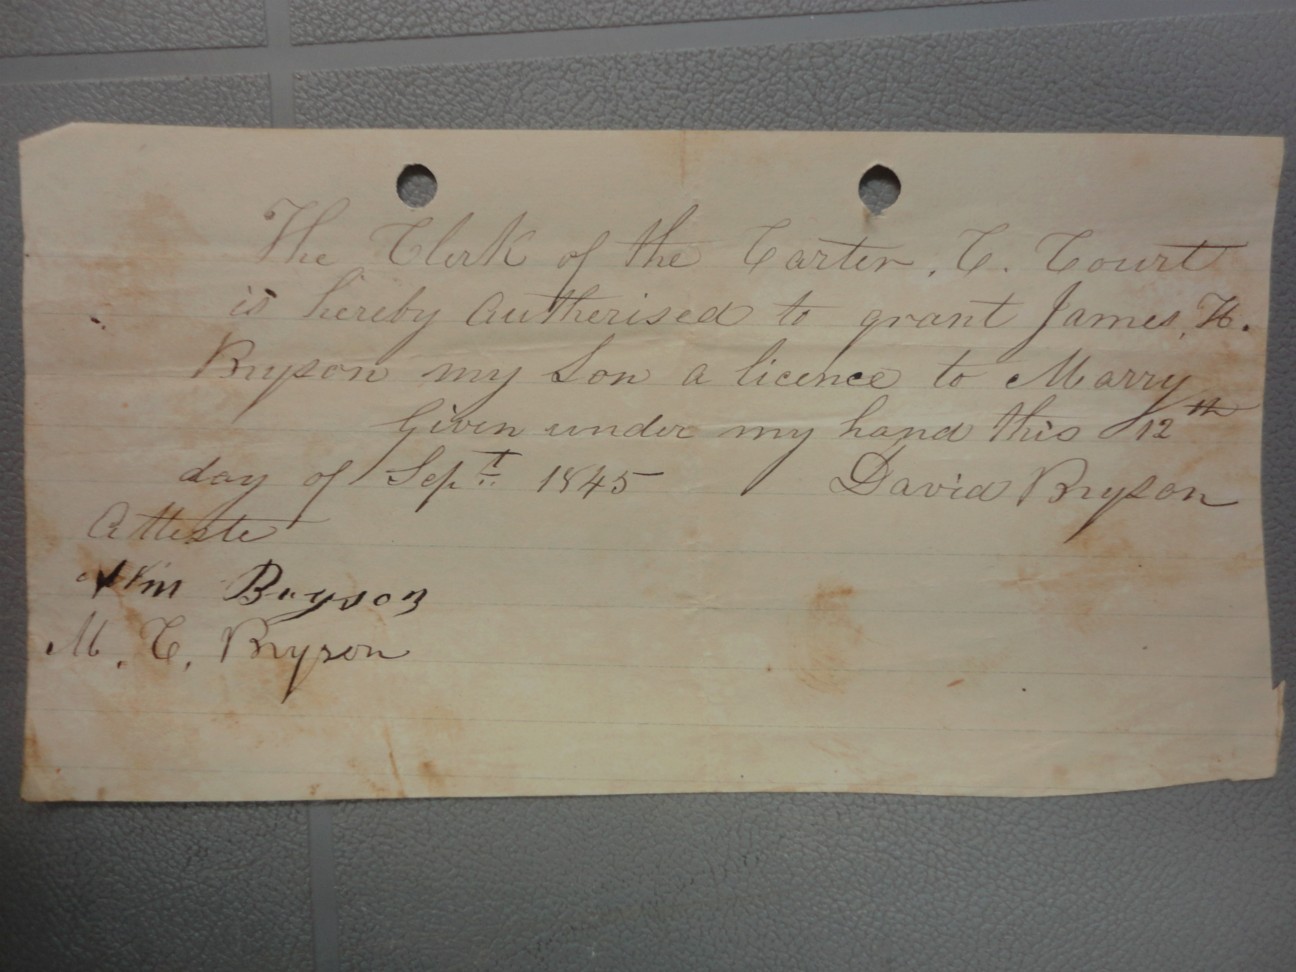 The Clerk of the Carter. C. Court
is hereby Autherised to grant James. H.
Bryson my Son a licence to Marry
Given under my hand this 12th
day of Sept. 1845 David Bryson
Atteste
Wm Bryson
M. C. Bryson